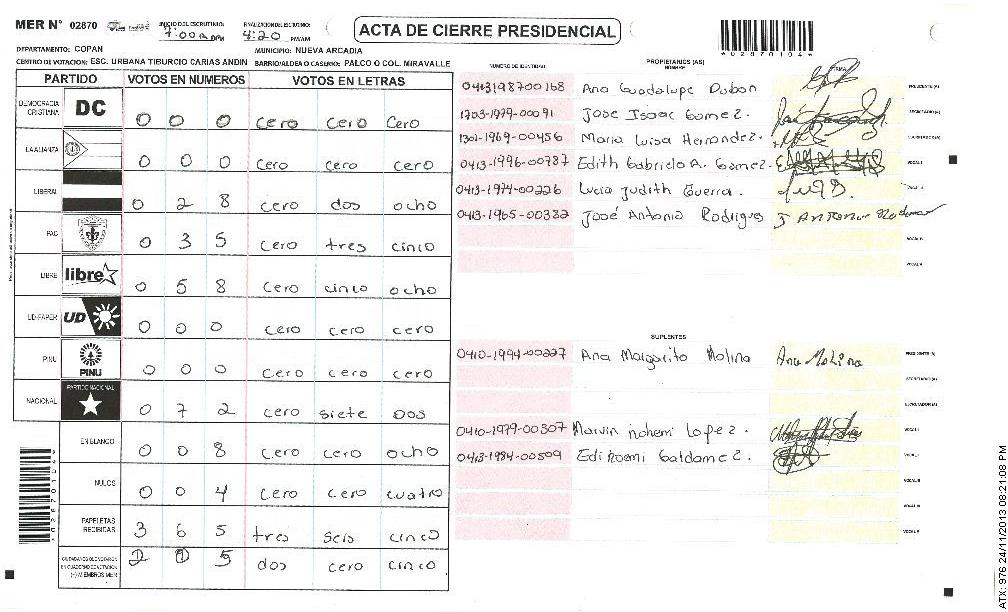 MER N° 02870 INICIO DEL ESCRUTINIO: 7:00 a PM FINALIZACION ESCRUTINIO: 4:20 PM/AM
ACTA DE CIERRE PRESIDENCIAL
*02870104*
DEPARTAMENTO: COPAN MUNICIPIO: NUEVA ARCADIA
CENTRO DE VOTACION: ESC. URBANA TIBURCIO CARIAS ANDIN BARRIO/ALDEA O CASERIO: PALCO O COL. MIRAVALLE
PARTIDO VOTOS EN NUMEROS VOTOS EN LETRAS
DEMOCRACIA CRISTIANA DC 0 0 0 cero cero cero
LA ALIANZA 0 0 0 cero cero cero
LIBERAL 0 2 8 cero dos ocho
PAC 0 3 5 cero tres cinco
LIBRE libre 0 5 8 cero cinco ocho
UD-FAPER UD 0 0 0 cero cero cero
PINU PINU 0 0 0 cero cero cero
NACIONAL PARTIDO NACIONAL 0 7 2 cero siete dos
EN BLANCO 0 0 8 cero cero ocho
NULOS 0 0 4 cero cero cuatro
PAPELETAS RECIBIDAS 3 6 5 tres seis cinco
CIUDADANOS QUE VOTARON EN CUADERNO DE VOTACION (+) MIEMBROS MER 2 0 5 dos cero cinco
NUMERO DE IDENTIDAD PROPIETARIOS (AS) NOMBRE FIRMA
0413198700168 Ana Guadalupe Dubon PRESIDENTE (A)
1703-1979-00091 Jose Isaac Gomez. SECRETARIO (A)
1301-1969-00456 Maria Luisa Hernandez. ESCRUTADOR (A)
0413-1996-00787 Edith Gabriela A. Gomez. VOCAL I
0413-1974-00226 Lucia Judith Guerra. VOCAL II
0413-1965-00382 José Antonio Rodrigues J Antonio
VOCAL IV
VOCAL V
SUPLENTES
0410-1994-00227 Ana Margarito Molina Ana Molina PRESIDENTE (A)
SECRETARIO (A)
ESCRUTADOR (A)
0410-1979-00307 Marvin Nohemi Lopez. VOCAL I
0413-1984-00509 Edi Noemi Galdamez.
VOCAL III
VOCAL IV
VOCAL V
*02870104*
ATX: 976 24/11/2013 08:21:08 PM